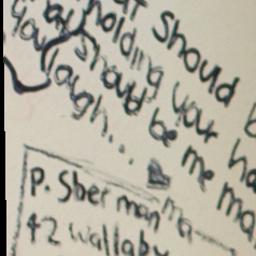 at should b
holding your ha
at should be me ma
you laugh...
ma
P. Sherman
42 wallaby